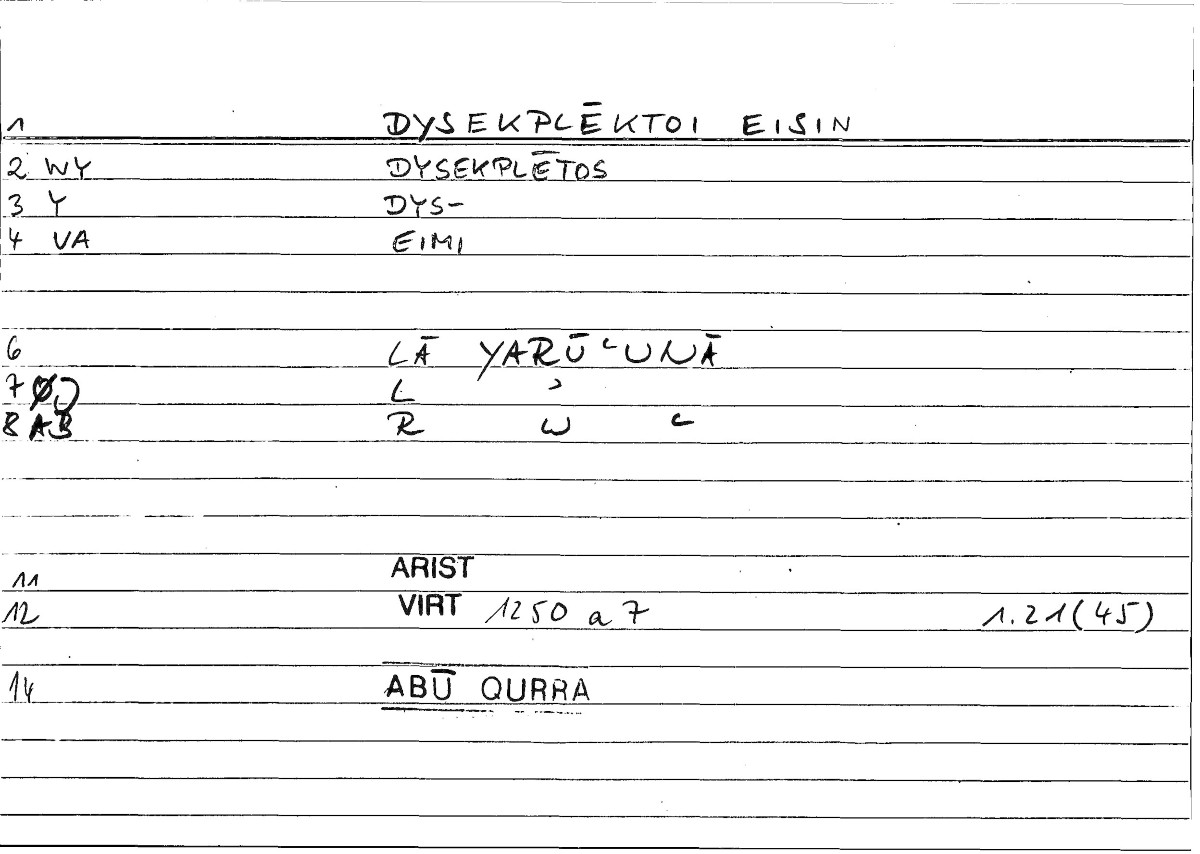 1 DYSEKPLĒKTOI EISIN
2 WY DYSEKPLĒTOS
3 Y DYS-
4 VA EIMI
6 LĀ YARŪʿUNĀ
7 L ʾ
8 AB R W ʿ
11 ARIST
12 VIRT 1250 a 7 1.21(45)
14 ABŪ QURRA